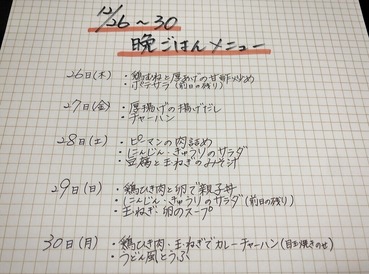 12/26〜30
晩ごはんメニュー
26日(木) ・鶏むねと厚あげの甘酢炒め
・ポテサラ(前日の残り)
27日(金) ・厚揚げの揚げだし
・チャーハン
28日(土) ・ピーマンの肉詰め
・にんじん・きゅうりのサラダ
・豆腐と玉ねぎのみそ汁
29日(日) ・鶏ひき肉と卵で親子丼
・にんじん・きゅうりのサラダ(前日の残り)
・玉ねぎ・卵のスープ
30日(月) ・鶏ひき肉・玉ねぎでカレーチャーハン(目玉焼きのせ)
・うどん風とうふ